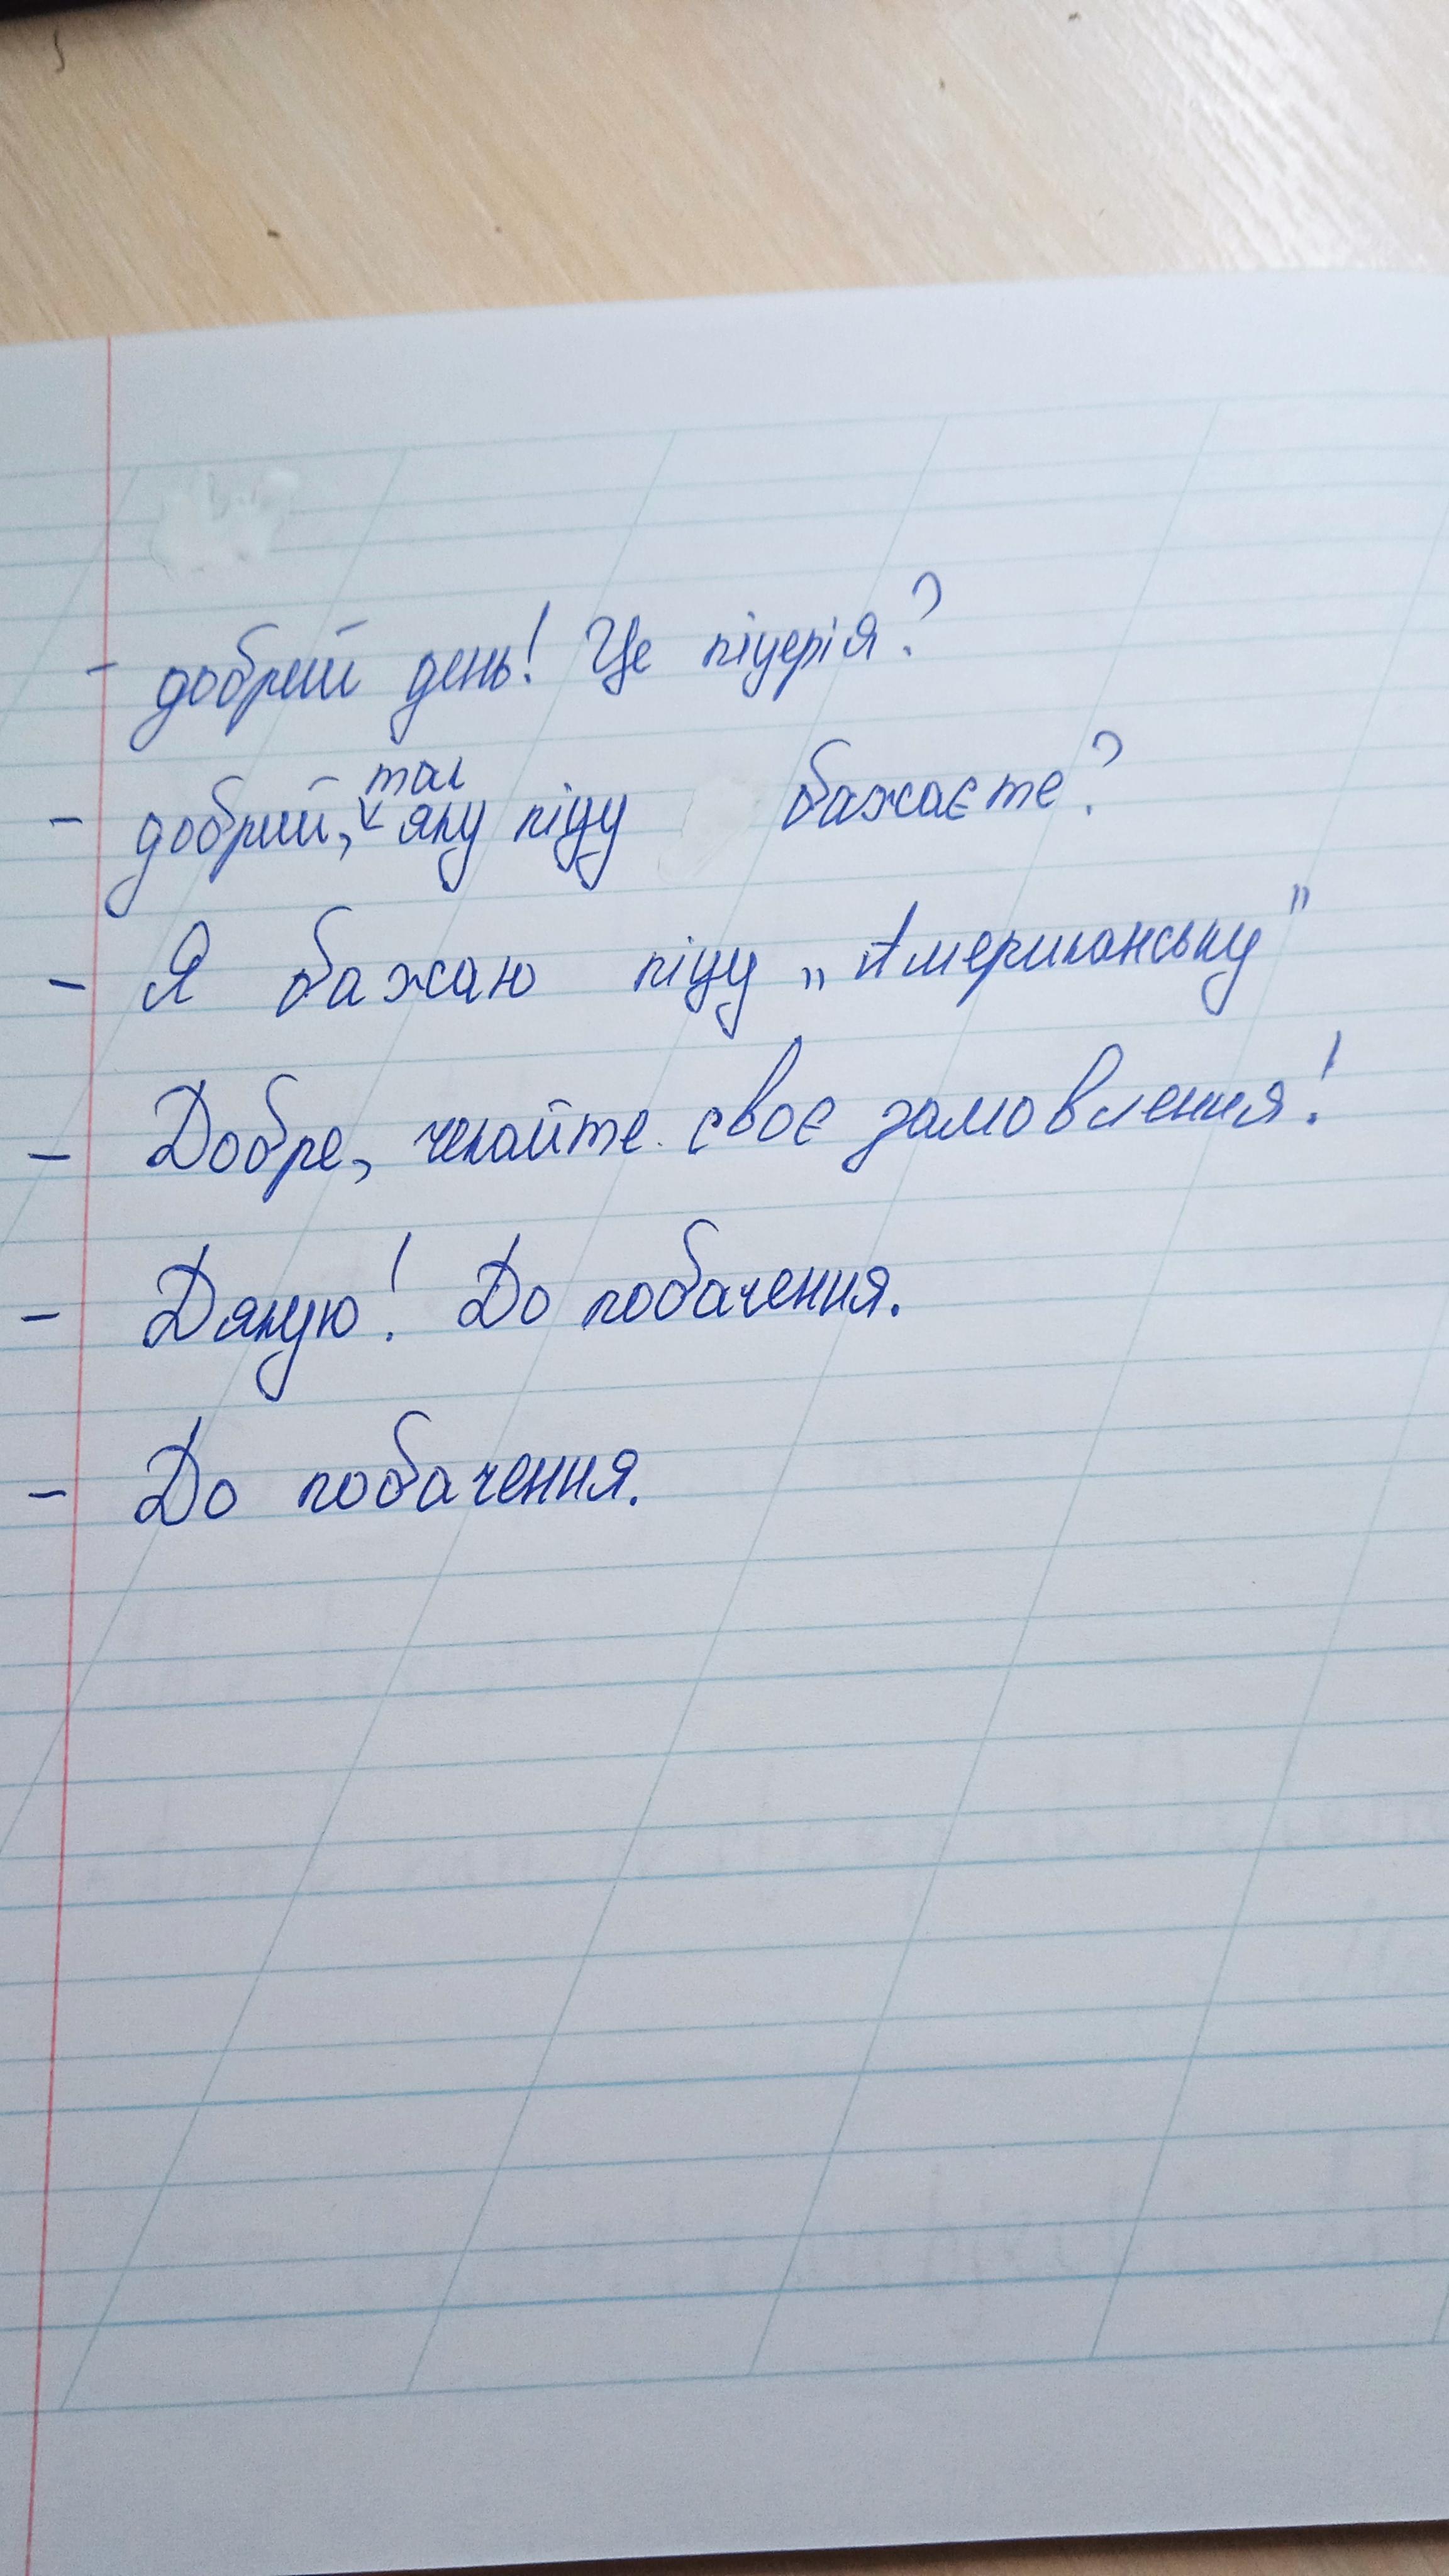 - добрий день! Це піцерія?
- добрий, так яку піцу бажаєте?
- Я бажаю піцу „Американську”
- Добре, чекайте своє замовлення!
- Дякую! До побачення.
- До побачення.